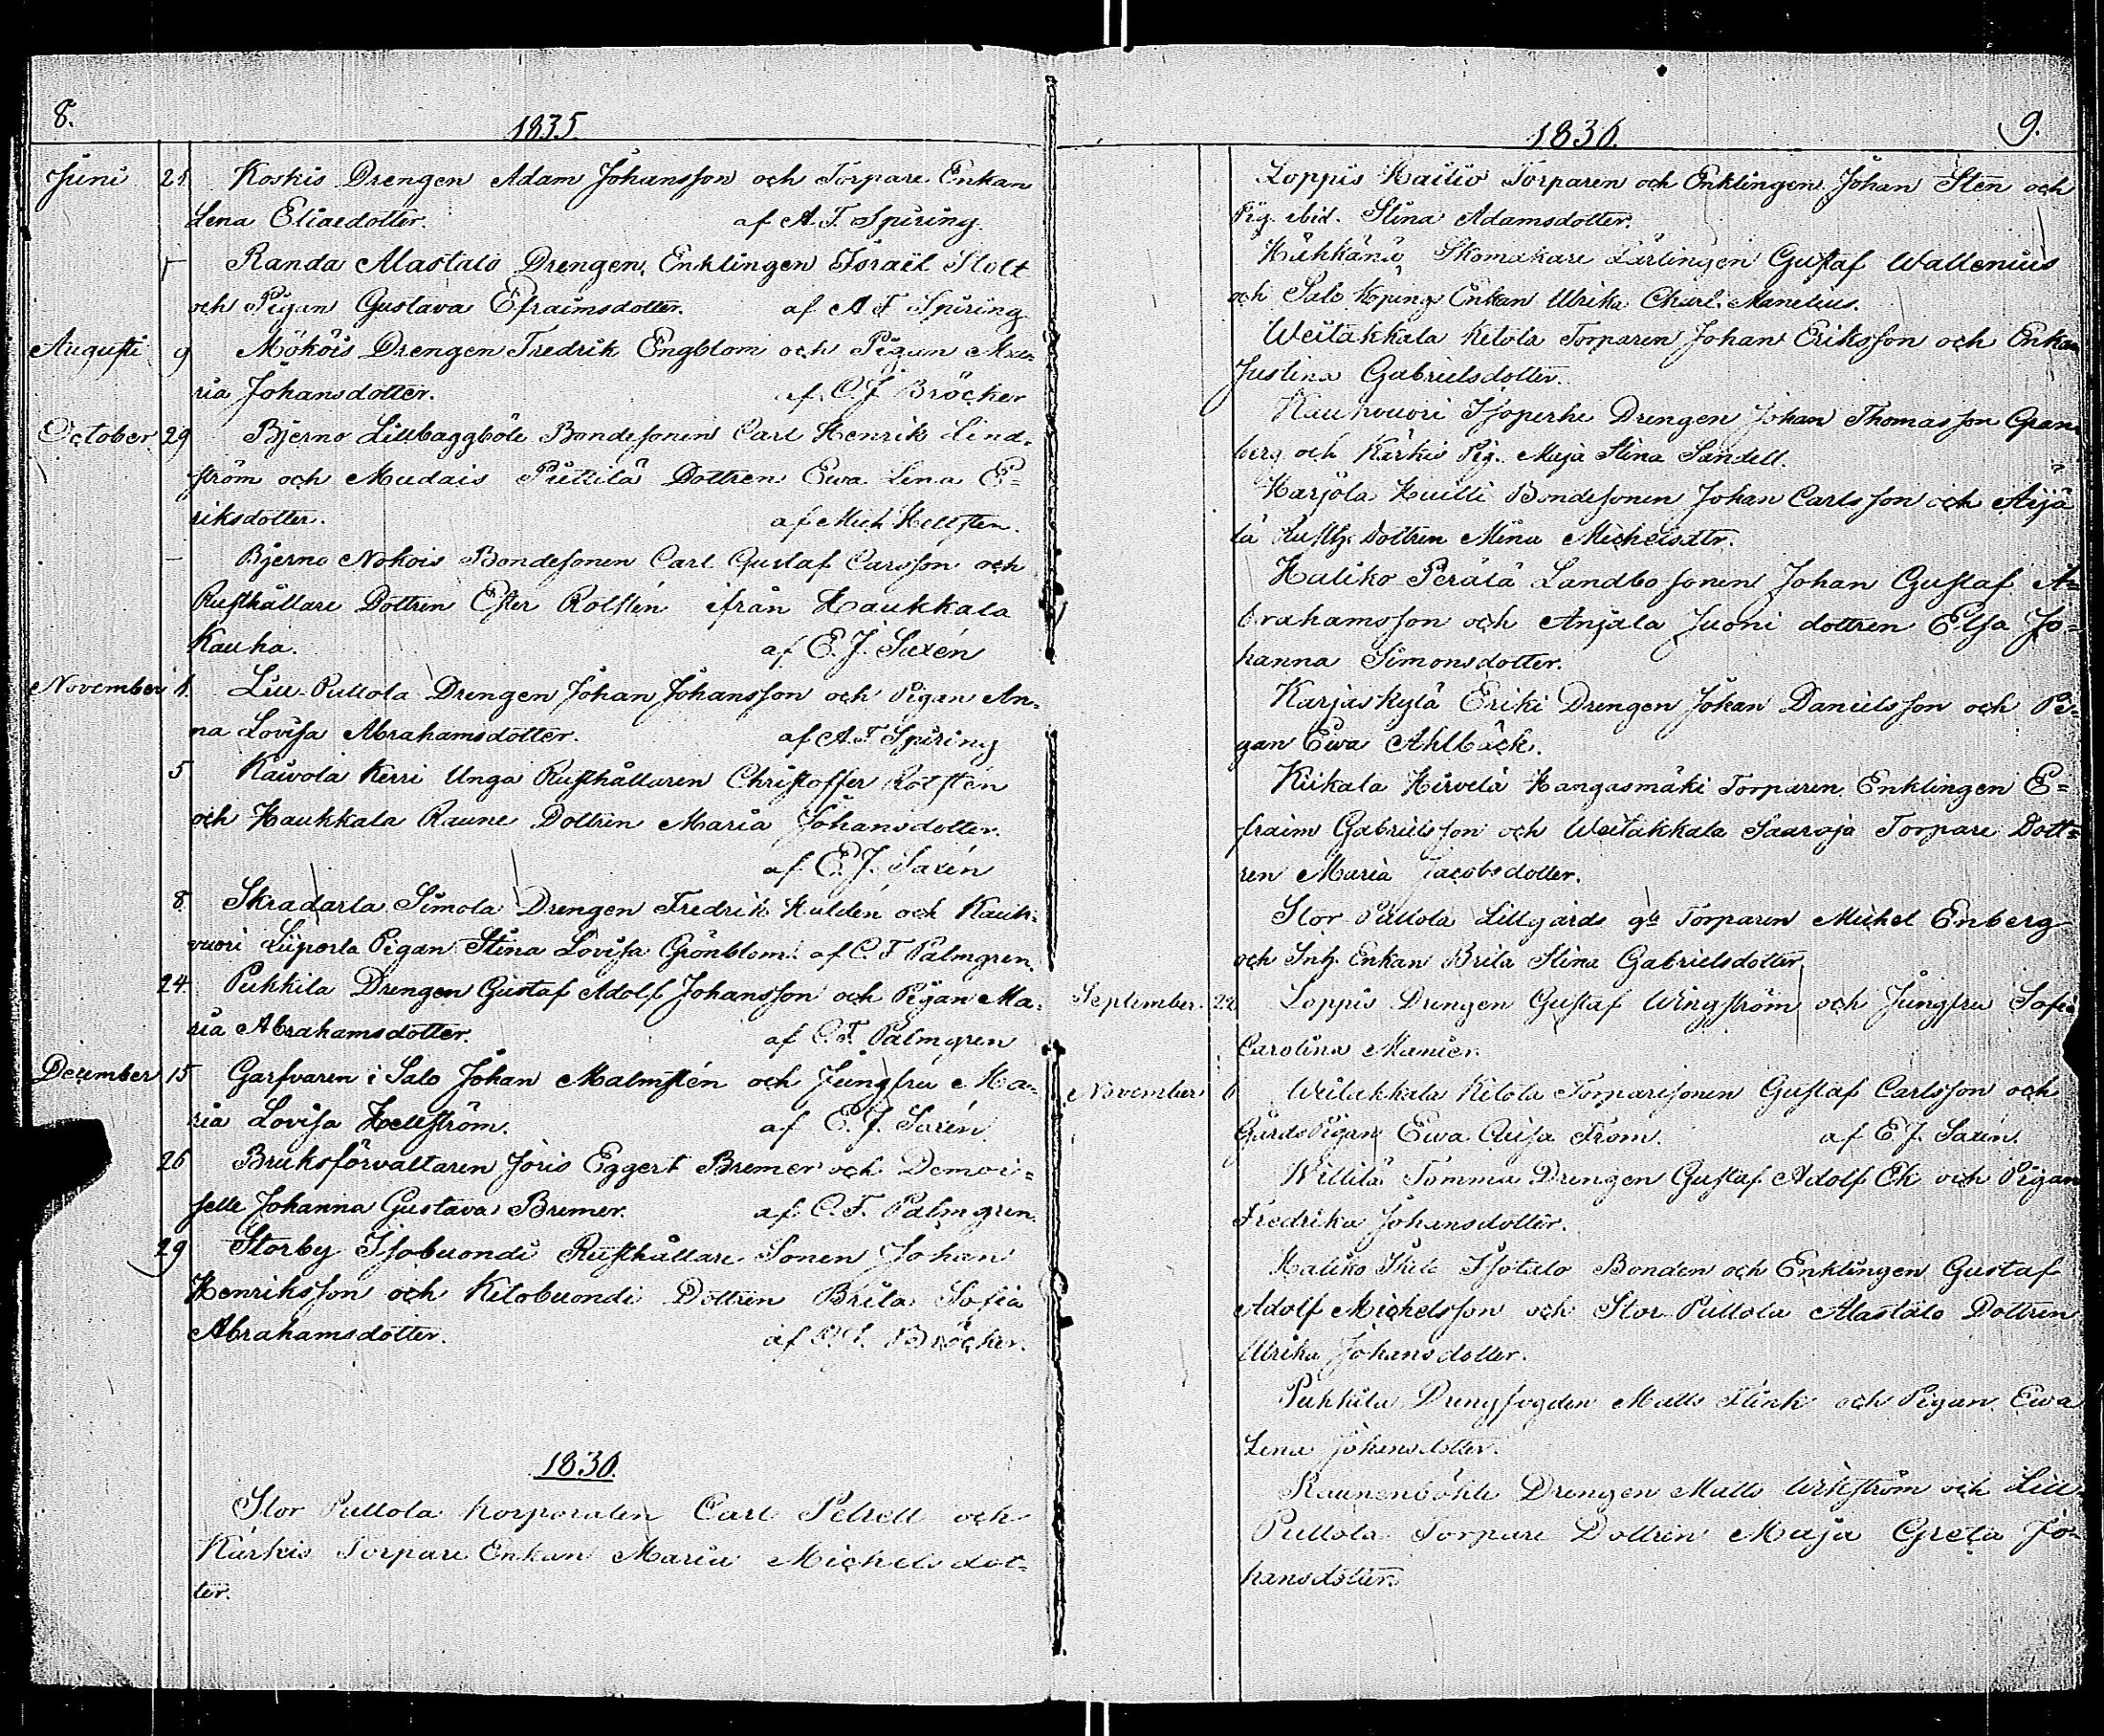 8.
1835.
Juni 21 Koskis Drengen Adam Johansson och Torpare Enkan
Lena Eliaedotter. af A. F. Spiring.
Randa Alastalo Drengen, Enklingen Israël Stolt
och Pigan Gustava Efraimsdotter. af A F Spiring
Augusti 9 Mököis Drengen Fredrik Engblom och Pigan Ma-
ria Johansdotter. af O. J. Bröcker
October 29 Bjerno Lillbaggböle Bondesonen Carl Henrik Lind-
ström och Mudais Püttilä Dottren Ewa Lena E=
riksdotter. af Mich Hellsten.
— Bjerno Nokois Bondesonen Carl Gustaf Carsson och
Rusthållare Dottren Ester Rolstén ifrån Haukkala
Kauha. af E. J. Saxén
November 1. Lill-Pullola Drengen Johan Johansson och Pigan An-
na Lovisa Abrahamsdotter. af A. F Spiring
5 Kaivola Kerri Unga Rusthållaren Christoffer Rolstén
och Haukkala Raune Dottren Maria Johansdotter.
af E. J. Saxén
8. Skradarla Simola Drengen Fredrik Huldén och Kauk-
vuori Liiperla Pigan Stina Lovisa Grönblom. af C. F Palmgren.
24. Pukkila Drengen Gustaf Adolf Johansson och Pigan Ma-
ria Abrahamsdotter. af C. F. Palmgren
December 15 Garfvaren i Salo Johan Malmstén och Jungfru Ma-
ria Lovisa Hellström. af E. J. Saxén
26 Bruksförvaltaren Joris Eggert Bremer och Demoi-
selle Johanna Gustava Bremer. af C. F. Palmgren.
29 Storby Isobuondi Rusthållare Sonen Johan
Henriksson och Kitobuondi Dottren Brita Sofia
Abrahamsdotter. af O. J. Bröcker.
1836.
Stor Pullola Korporalen Carl Petrell och
Kärkis Torpare Enkan Maria Michelsdot-
ter.
9.
1836.
Loppis Kailio Torparen och Enklingen Johan Sten och
Pig. ibid. Stina Adamsdotter.
Skomakare Lärlingen Gustaf Wallenius
och Salo Köping Enkan Ulrika Charl. Manelius.
Weitakkala Ketola Torparen Johan Eriksson och Enkan
Justina Gabrielsdotter.
Kaukvuori Isoperhe Drengen Johan Thomasson Gran-
berg och Kärkis Pig. Maja Stina Sandell.
Karjola Huitti Bondesonen Johan Carlsson och Aijä
lä Rusth. Dottren Mina Michelsdtr.
Haliko Perälä Landbosonen Johan Gustaf A=
brahamsson och Anjala Juoni dottren Elsa Jo=
hanna Simonsdotter.
Karjaskylä Eriki Drengen Johan Danielsson och Pi-
gan Ewa Ahlbäck.
Kiikala Hirvelä Kangasmäki Torparen Enklingen E=
fraim Gabrielsson och Weitakkala Saaroja Torpare Dott=
ren Maria Jacobsdotter.
Stor Pullola Lillgårds gle Torparen Michel Enberg
och Inh. Enkan Brita Stina Gabrielsdotter.
September. 22 Loppis Drengen Gustaf Wingström och Jungfru Sofia
Carolina Manier.
November 6 Weitakkala Ketola Torparesonen Gustaf Carlsson och
GårdsPigan Ewa Caisa From. af E. J. Saxén.
Willilä Tomma Drengen Gustaf Adolf Ek och Pigan
Fredrika Johansdotter.
Haliko Isotalo Bonden och Enklingen Gustaf
Adolf Michelsson och Stor Pullola Alastalo Dottren
Ulrika Johansdotter.
Pukkila Drengfogden Matts Flink och Pigan Ewa
Lena Johansdotter.
Drengen Matts Wikström och Lill
Pullola Torpare Dottren Maja Greta Jo-
hansdotter.